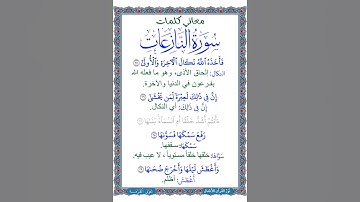 معاني كلمات
سُورَةُ النَّازِعَاتِ
فَأَخَذَهُ اللَّهُ نَكَالَ الْآخِرَةِ وَالْأُولَىٰ
النكال: إلحاق الأذى، وهو ما فعله الله
بفرعون في الدنيا والآخرة.
إِنَّ فِي ذَٰلِكَ لَعِبْرَةً لِّمَن يَخْشَىٰ
إِنَّ فِي ذَٰلِكَ: أي النكال.
أَأَنتُمْ أَشَدُّ خَلْقًا أَمِ السَّمَاءُ بَنَاهَا
رَفَعَ سَمْكَهَا فَسَوَّاهَا
سَمْكَهَا: سقفها.
سَوَّاهَا: خلقها خلقاً مستوياً، لا عيب فيه.
وَأَغْطَشَ لَيْلَهَا وَأَخْرَجَ ضُحَاهَا
أَغْطَشَ: أظلم.